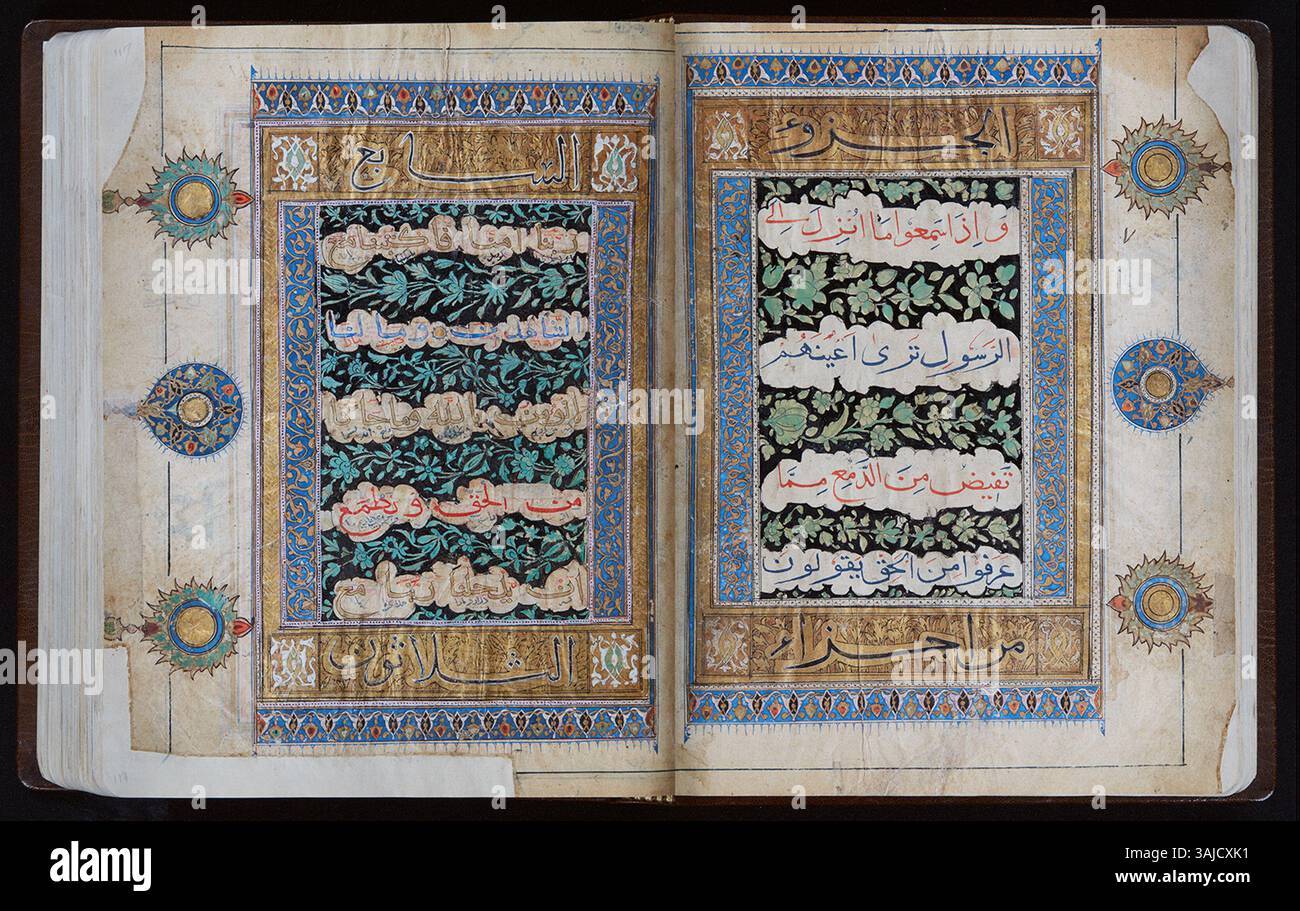 الجزوء
وَاِذَا سمعوا ما انزل الى
الرسول ترى اعينهم
تفيض من الدمع مما
عرفوا من الحق يقولون
من اجزاء
السابع
ربنا امنا فاكتبنا مع
الشاهدين وما لنا
لا نومن بالله وما جانا
من الحق ونطمع
ان يدخلنا ربنا مع
الثلاثون
117
117
٧
alamy
Image ID: 3AJCXK1
www.alamy.com